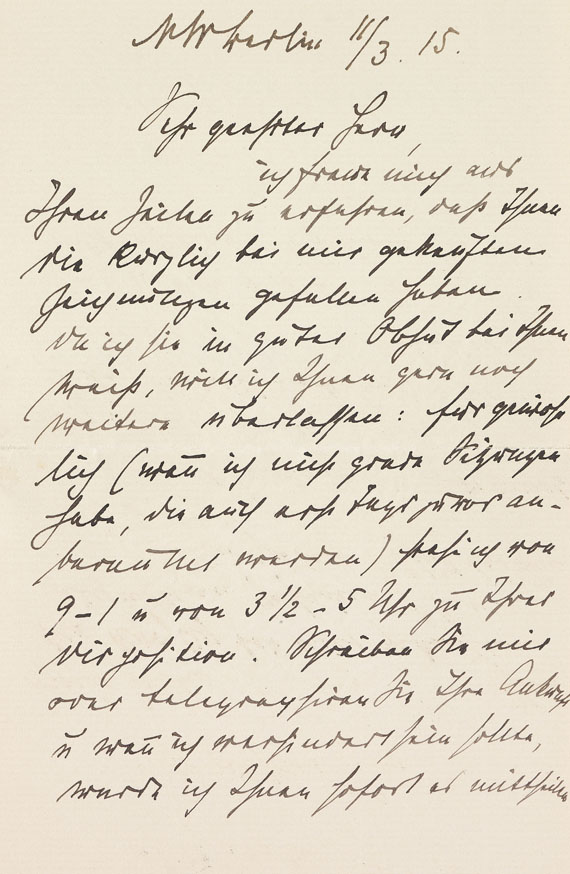 Berlin 11/3. 15.
Sehr geehrter Herr,
ich freue mich aus
Ihren Zeilen zu erfahren, daß Ihnen
die kürzlich bei mir gekauften
Zeichnungen gefallen haben.
Da ich sie in guter Obhut bei Ihnen
weiß, will ich Ihnen gern noch
weitere überlassen: für gewöhn
lich (wenn ich nicht grade Sitzungen
habe, die auch erst Tags zuvor an-
beraumt werden) steh ich von
9–1 u von 3 1/2 – 5 Uhr zu Ihrer
Disposition. Schreiben Sie mir
oder telegraphiren Sie Ihre Ankunft
u wenn ich verhindert sein sollte,
würde ich Ihnen sofort es mittheilen